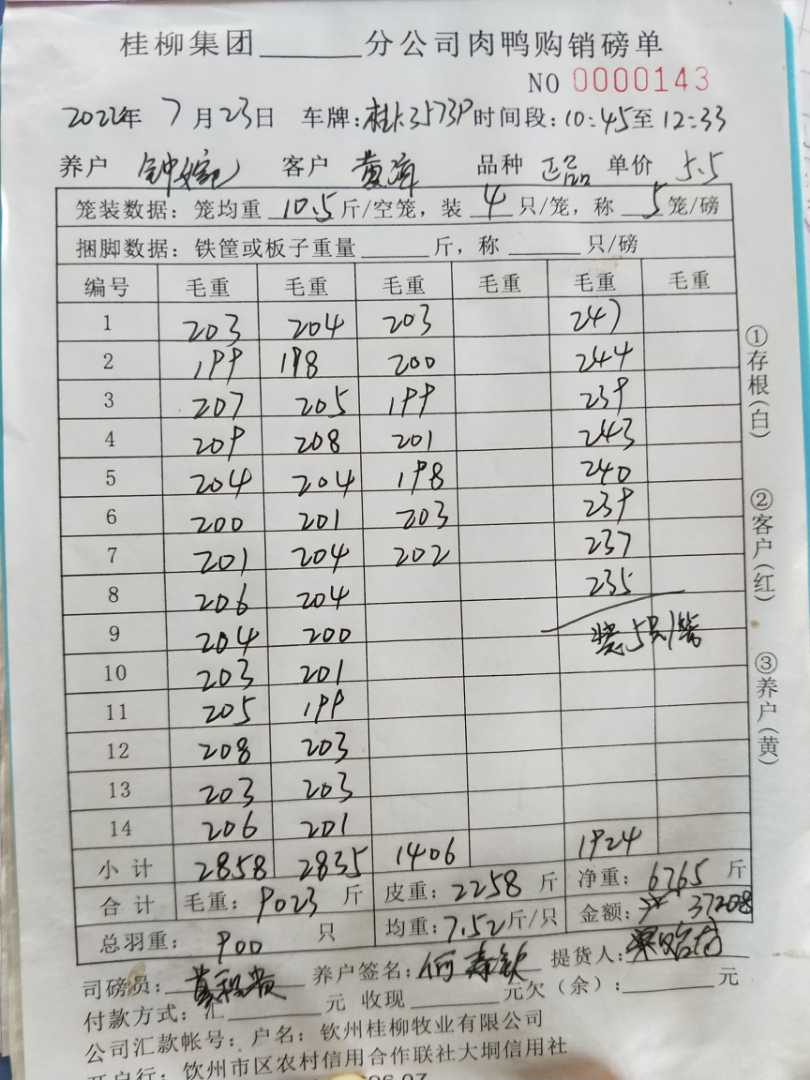 桂柳集团______分公司肉鸭购销磅单
NO 0000143
2022年 7月23日 车牌:桂K3573P 时间段:10:45至12:33
养户 钟婉 客户 黄海 品种 正品 单价 5.5
笼装数据:笼均重 10.5 斤/空笼,装 4 只/笼,称 5 笼/磅
捆脚数据:铁筐或板子重量______斤,称______只/磅
编号 毛重 毛重 毛重 毛重 毛重 毛重
1 203 204 203 247
2 199 198 200 244
3 207 205 199 239
4 209 208 201 243
5 204 204 198 240
6 200 201 203 239
7 201 204 202 237
8 206 204 235
9 204 200 装5只1笼
10 203 201
11 205 199
12 208 203
13 203 203
14 206 201
小计 2858 2835 1406 1924
合计 毛重:9023斤 皮重:2258斤 净重:6765斤
总羽重:900只 均重:7.52斤/只 金额:37208
司磅员: 养户签名:何寿钦 提货人:
付款方式:汇______元 收现______元欠(余):______元
公司汇款帐号:户名:钦州桂柳牧业有限公司
开户行:钦州市区农村信用合作联社大垌信用社
①存根(白)
②客户(红)
③养户(黄)